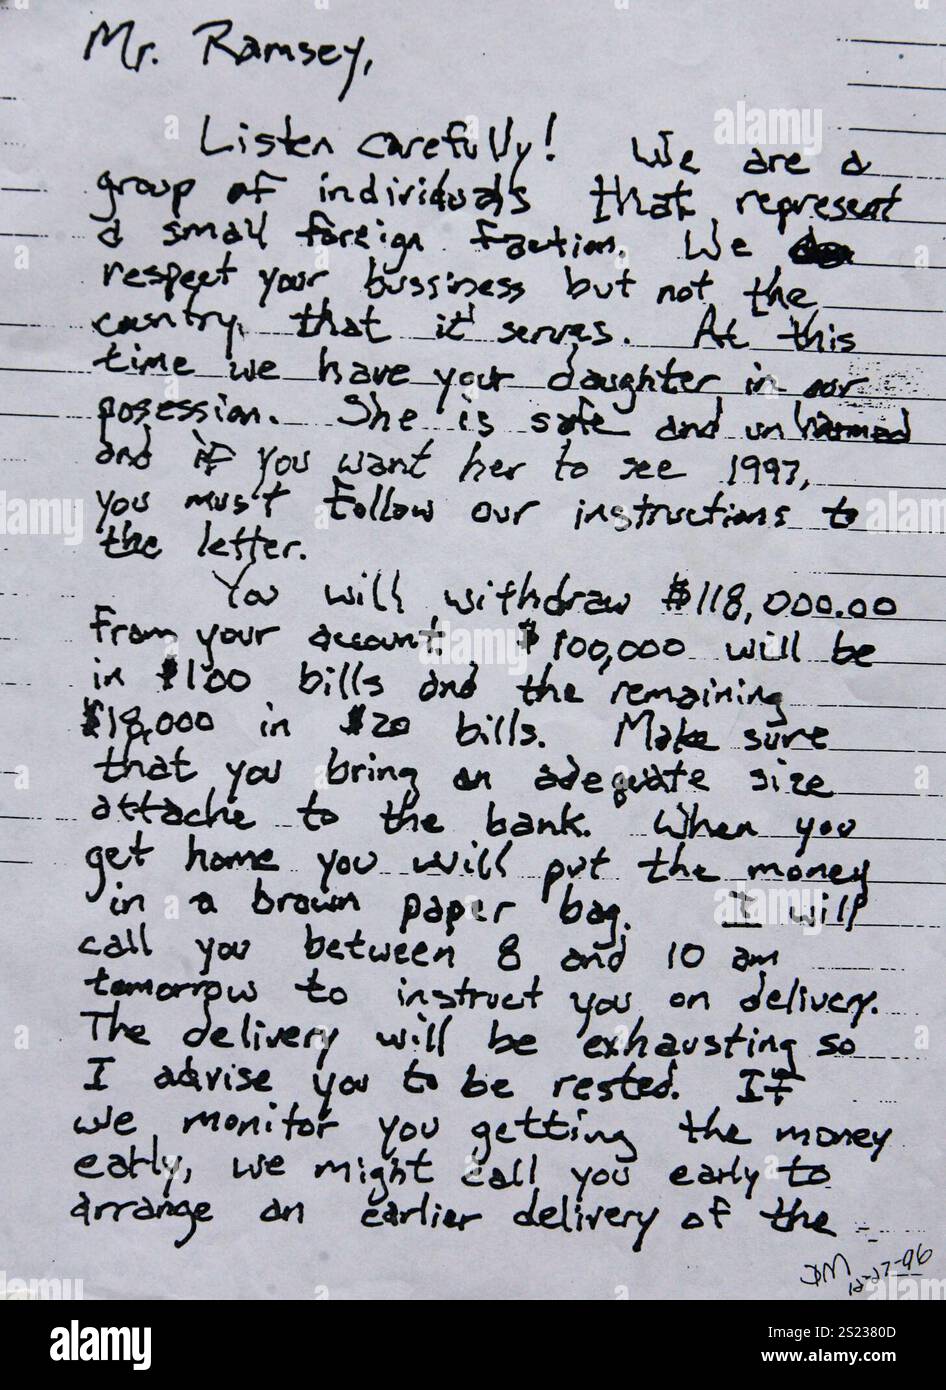 Mr. Ramsey,
Listen carefully! We are a
group of individuals that represent
a small foreign faction. We
respect your bussiness but not the
country that it serves. At this
time we have your daughter in our
posession. She is safe and unharmed
and if you want her to see 1997,
you must follow our instructions to
the letter.
You will withdraw $118,000.00
from your account. $100,000 will be
in $100 bills and the remaining
$18,000 in $20 bills. Make sure
that you bring an adequate size
attache to the bank. When you
get home you will put the money
in a brown paper bag. I will
call you between 8 and 10 am
tomorrow to instruct you on delivery.
The delivery will be exhausting so
I advise you to be rested. If
we monitor you getting the money
early, we might call you early to
arrange an earlier delivery of the
DM
12-27-96
alamy
alamy
Image ID: 2S2380D
www.alamy.com